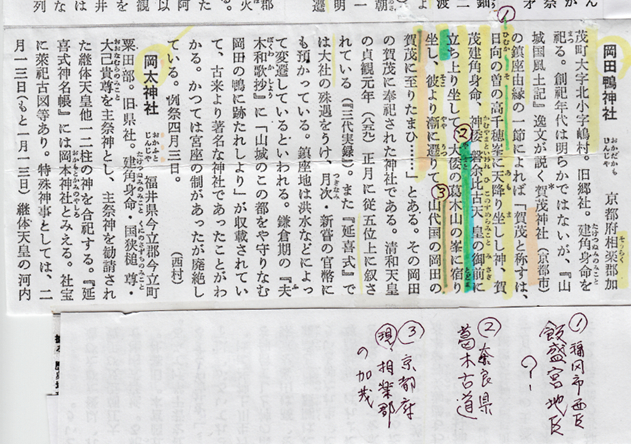 岡田鴨神社
おかだかも
じんじゃ
京都府相楽郡加
そうらく
茂町大字北小字鴨村。旧郷社。建角身命を
たけつぬみのみこと
祀る。創祀年代は明らかではないが、『山
城国風土記』逸文が説く賀茂神社（京都市）
の鎮座由縁の一節によれば「賀茂と称すは、
①
日向の曽の高千穂峯に天降り坐しし神、賀
茂建角身命、神倭石余比古天皇の御前に
立ち上り坐して、②大倭の葛木山の峯に宿り
坐し、彼より漸に遷り、③山代国の岡田の
賀茂に至りたまひ……」とある。その岡田
の賀茂に奉祀された神社である。清和天皇
の貞観元年（八五九）正月に従五位上に叙さ
れている（『三代実録』）。また『延喜式』で
は大社の殊遇をうけ、月次・新嘗の官幣に
も預かっている。鎮座地は洪水などによっ
て変遷しているといわれる。鎌倉期の『夫
木和歌抄』に「山城のこの都をや守りなむ
岡田の鴨に跡たれしより」が収載されてい
て、古来より著名な神社であったことがわ
かる。かつては宮座の制があったが廃絶し
ている。例祭四月三日。
（西村）
岡太神社
おかふと
じんじゃ
福井県今立郡今立町
粟田部。旧県社。建角身命・国狭槌尊・
大己貴尊を主祭神とし、主祭神を勧請され
た継体天皇他一二柱の神を合祀する。『延
喜式神名帳』には岡本神社とみえる。社宝
に菜祀古図等あり。特殊神事としては、二
月一三日（もと一月一三日）継体天皇の河内
① 福岡市西区
飯盛宮地区
？
② 奈良県
葛木古道
③ 京都府
現、相楽郡
の加茂